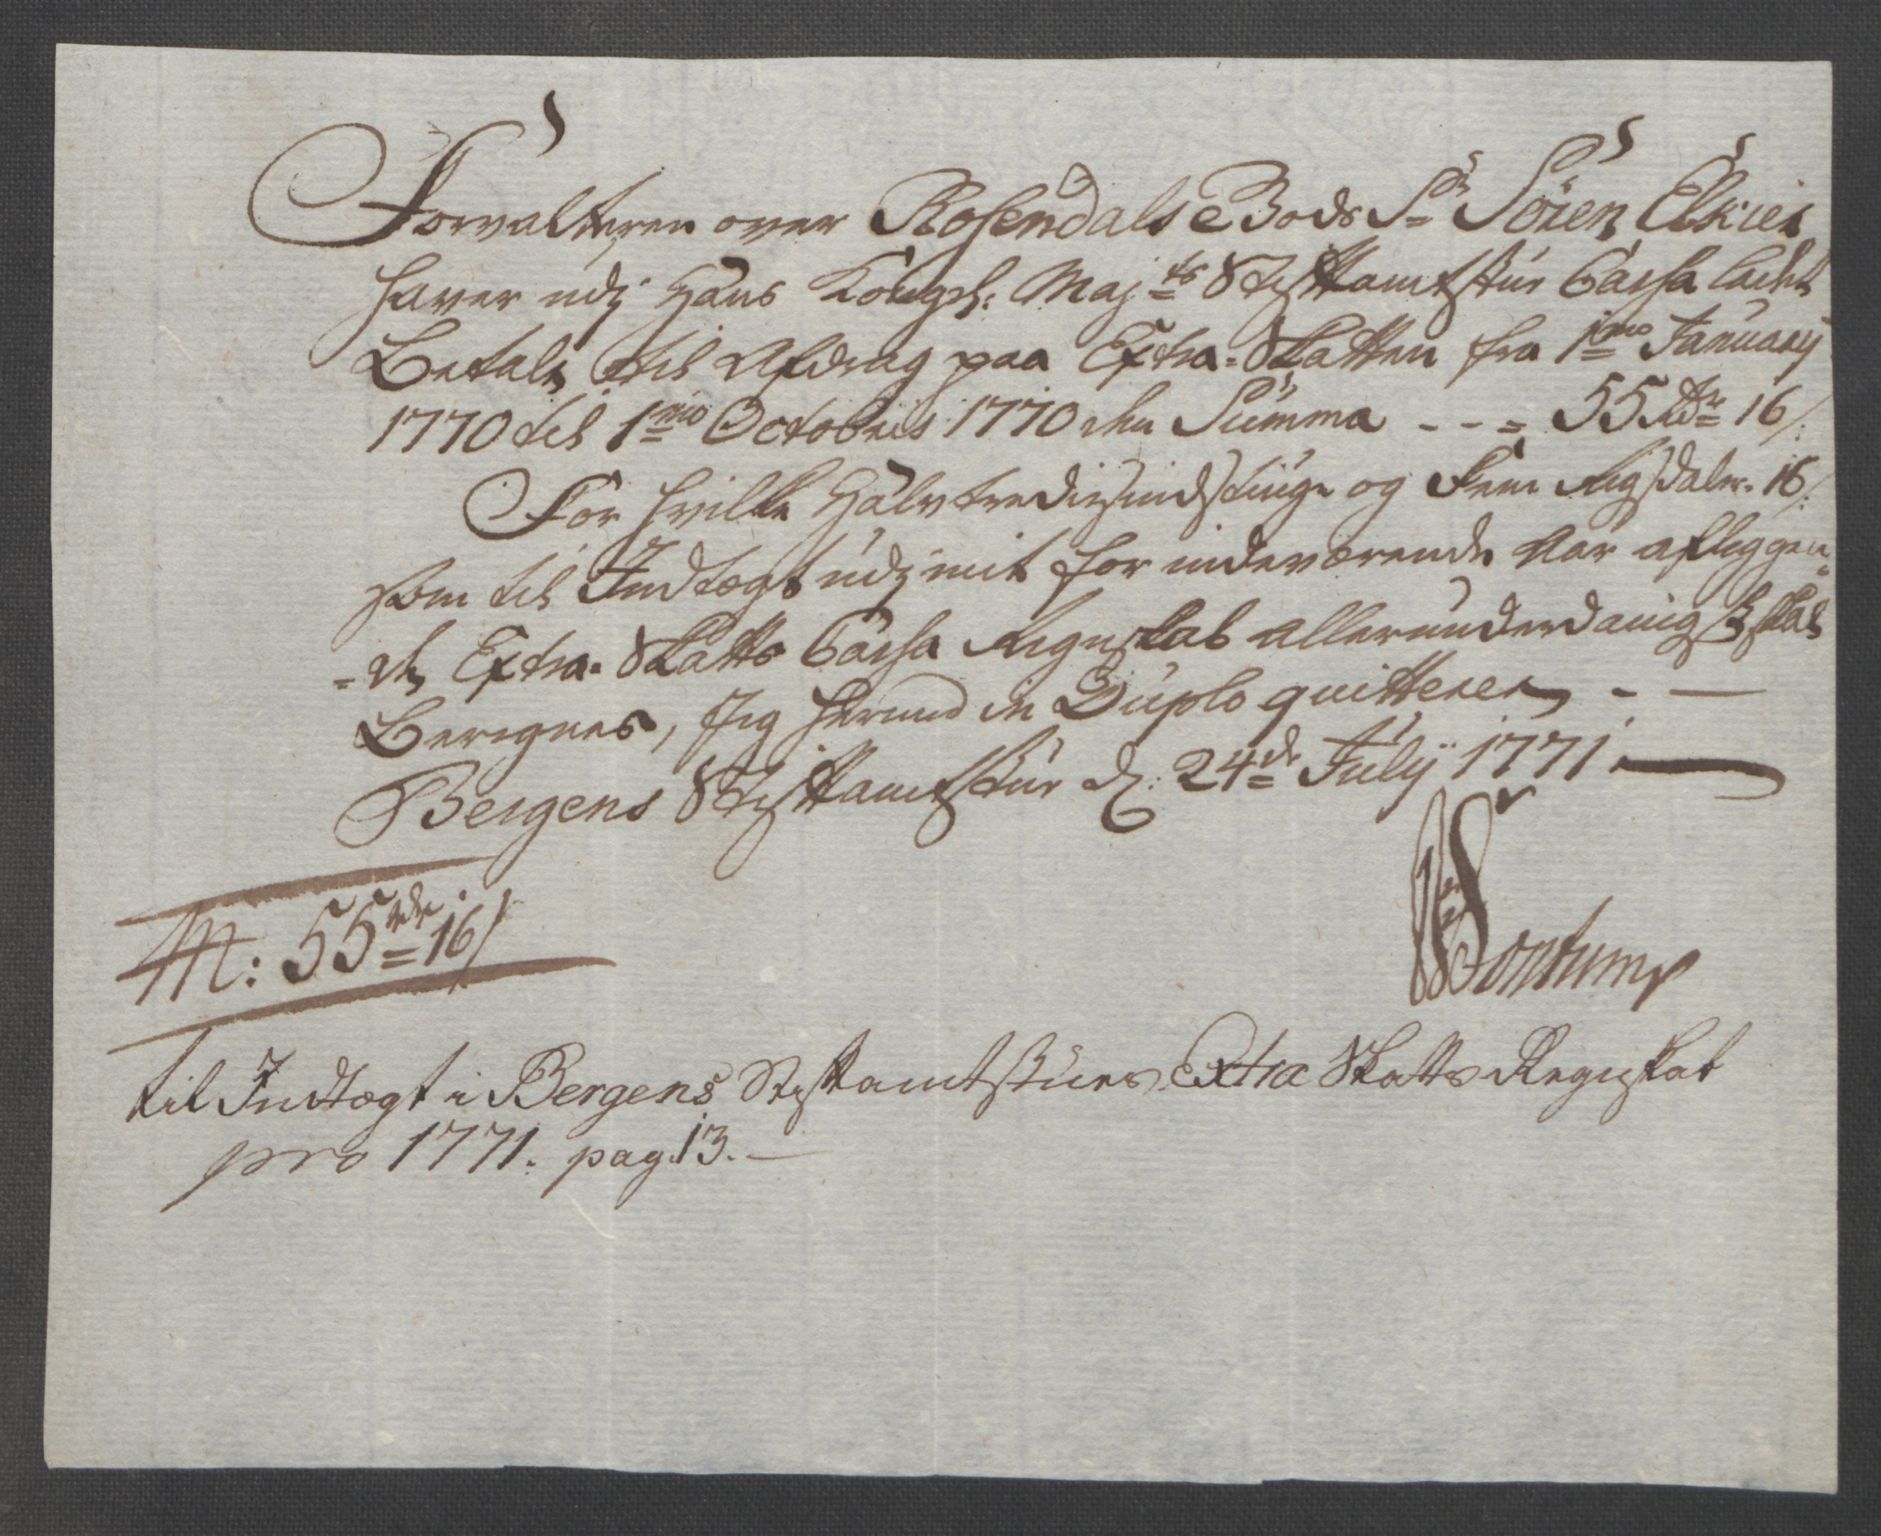 Forvalteren over Rosendals Gods Sr. Sören Elskier
haver udj Hans Kongel: Majts Stiftamtstue Cassa ladet
Betale til Afdrag paa Extra-Skatten fra 1mo January
1770 til 1mo Octobris 1770 den Summa - - = 55 Rdr 16 /:
For hvilke Halvtrediesindstiuge og Fem Rigsdaler 16 /:
som til Indtægt udj mit for indeværende Aar aflæggen-
=de Extra-Skatts Cassa Regnskab allerunderdanigst skal
Beregnes, Jeg herved in Duplo quitterer - —
Bergens Stiftamtstue d: 24de July 1771. —
55 rdr 16 /
til Indtægt i Bergens Stiftamtstues Extra Skatts Regnskab
pro 1771. pag. 13. —